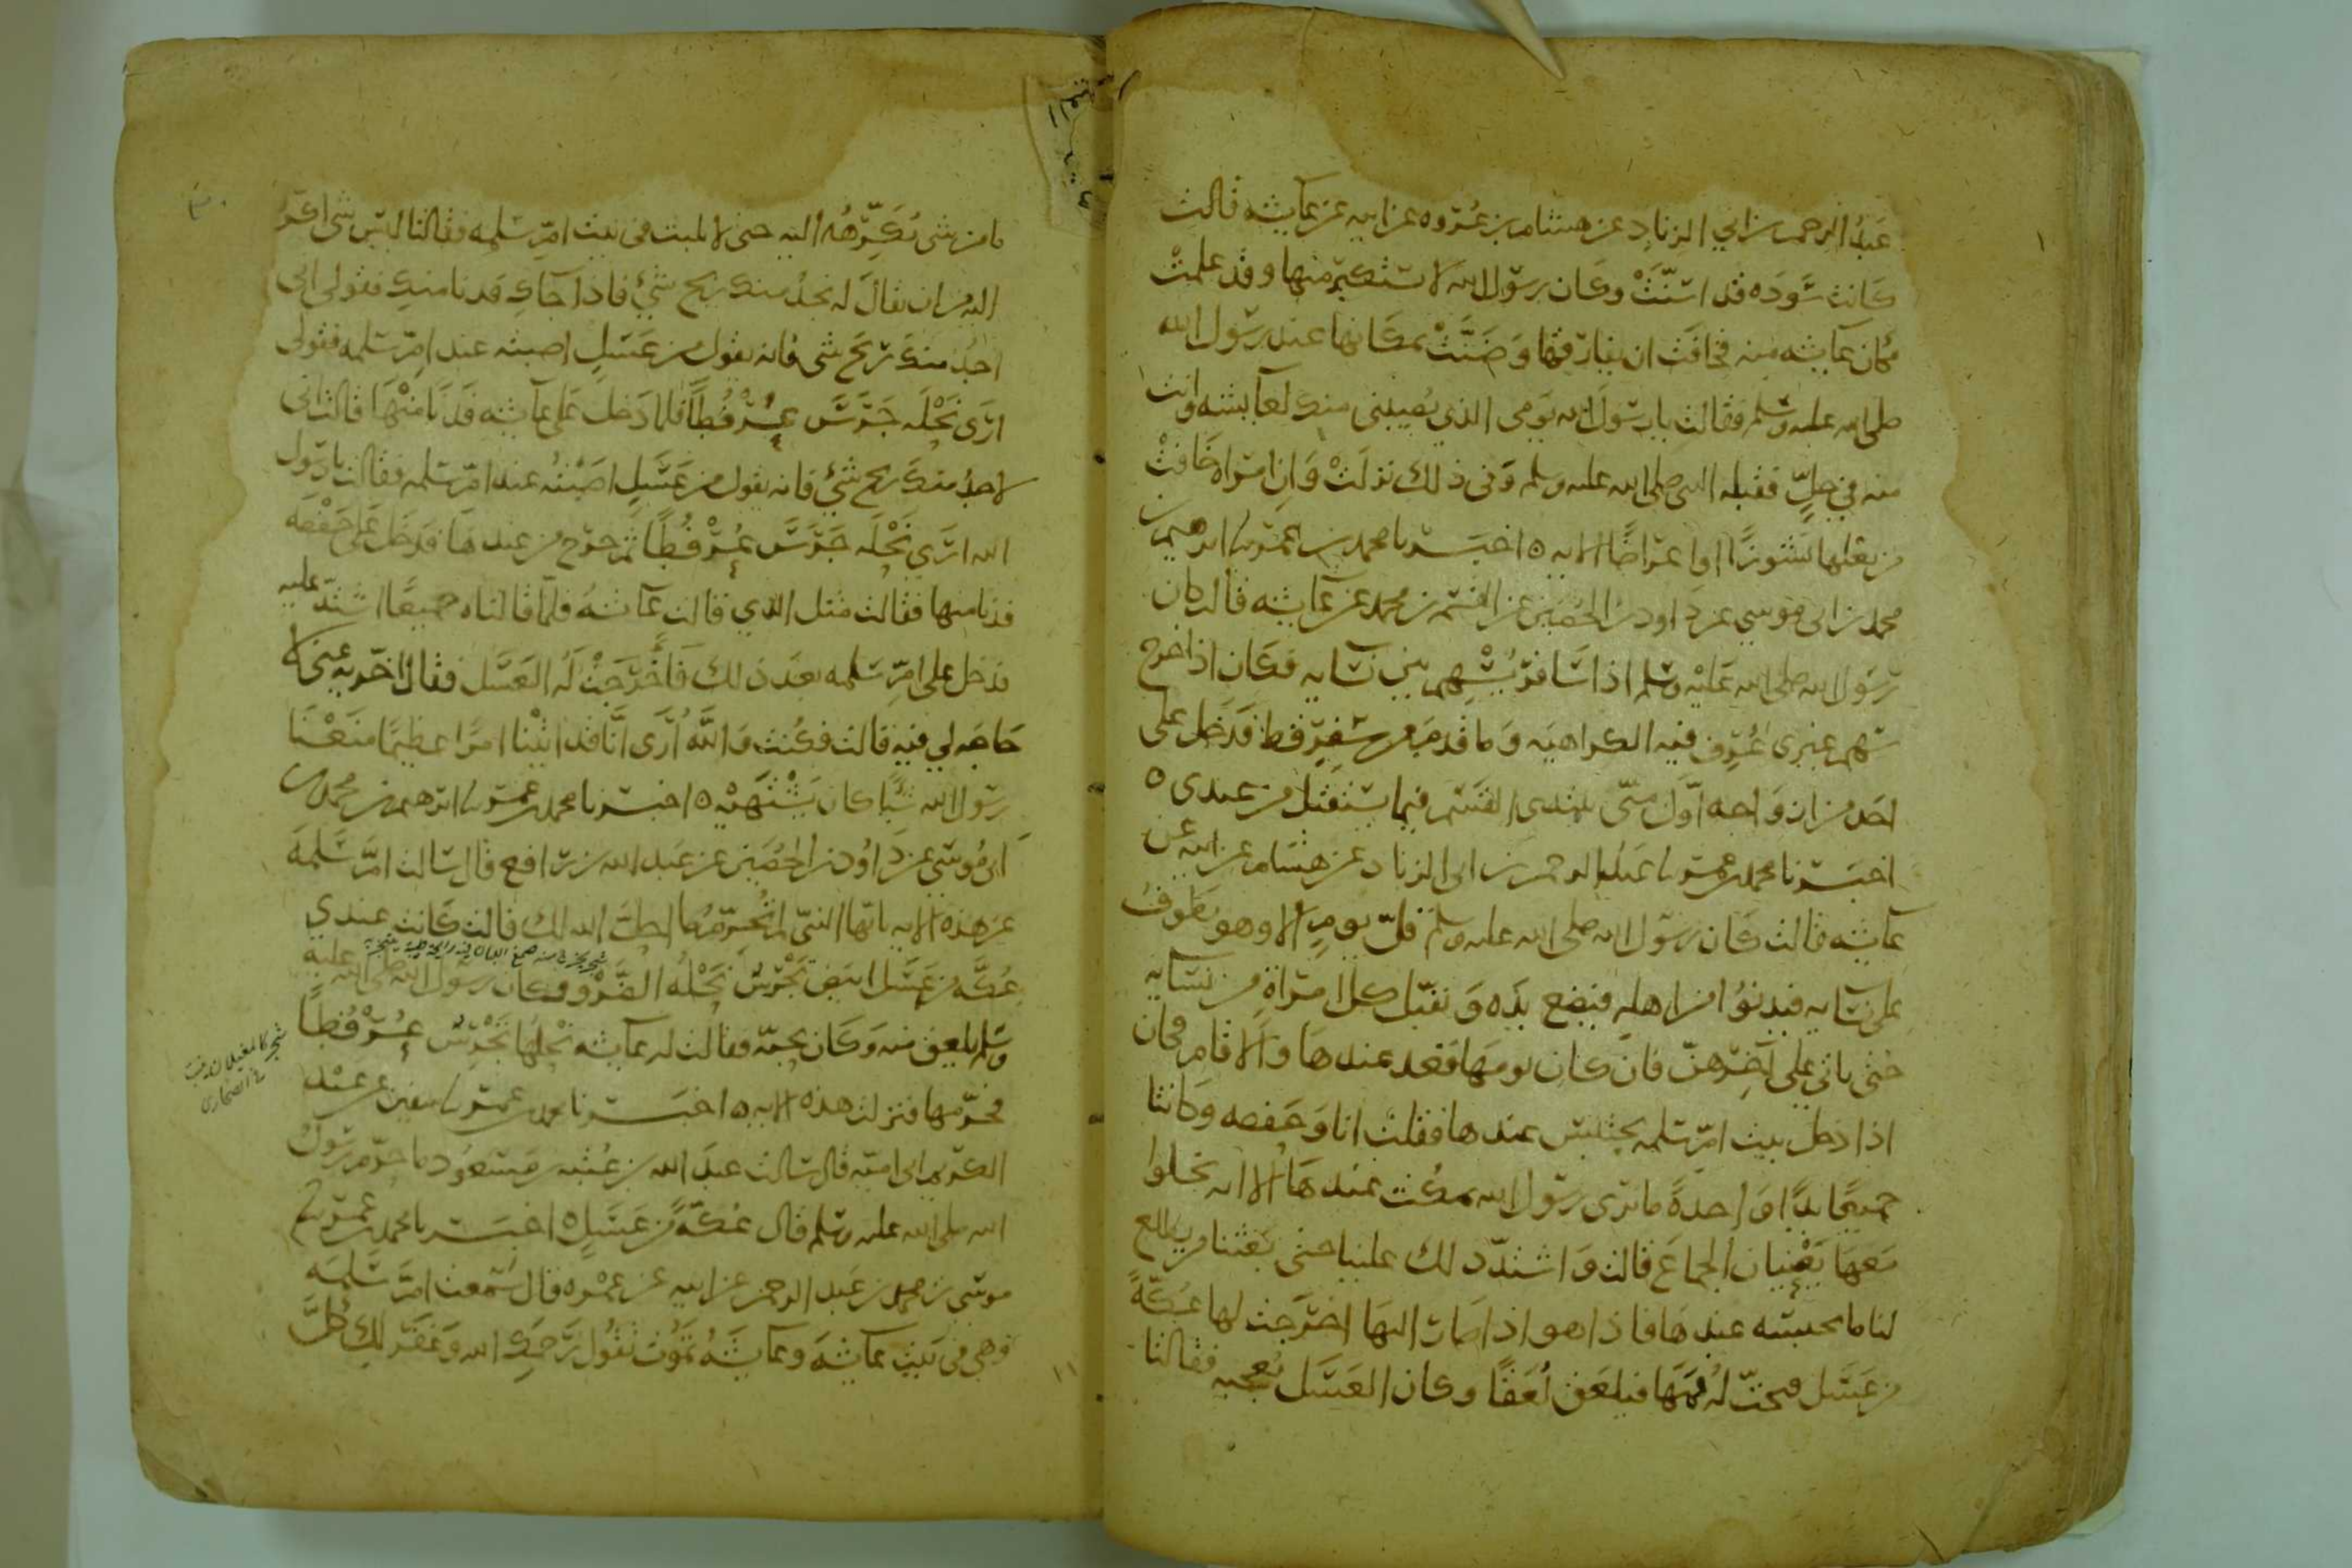 عبد الرحمن بن ابي الزناد عن هشام بن عروه عن ابيه عن عايشه قالت
كانت سوده قد اسنّت وكان رسول الله لا يستكثر منها وقد علمت
مكان عايشه منه فخافت ان يفارقها وضنّت بمكانها عند رسول الله
صلى الله عليه وسلم فقالت يا رسول الله يومي الذي يصيبني منك لعايشه وانت
منه في حلّ فقبله النبي صلى الله عليه وسلم وفي ذلك نزلت وان امراه خافت
من بعلها نشوزًا او اعراضًا الايه ٥ اخبرنا محمد بن عمر نا ابرهيم بن
محمد بن ابي موسى عن داود بن الحصين عن القسم بن محمد عن عايشه قالت كان
رسول الله صلى الله عليه وسلم اذا سافر يسهم بين نسايه فكان اذا خرج
سهم غيري عُرف فيه الكراهيه وما قدم من سفر قط فدخل على
احد من ازواجه اوّل منّي يبتدي القسم فيما يستقبل من عندي ٥
اخبرنا محمد بن عمر نا عبد الرحمن بن ابي الزناد عن هشام عن ابيه عن
عايشه قالت كان رسول الله صلى الله عليه وسلم قلّ يوم الا وهو يطوف
على نسايه فيدنوا من اهله فيضع يده ويقبّل كل امراة من نسايه
حتى ياتي على آخرهنّ فان كان يومها قعد عندها والا قام فكان
اذا دخل بيت امّ سلمه يحتبس عندها فقلت انا وحفصه وكانتا
جميعًا يدًا واحدةً ما نرى رسول الله يمكث عندها الا انه يخلوا
معها يعنيان الجماع قالت واشتدّ ذلك علينا حتى بعثنا من يطلع
لنا ما يحبسه عندها فاذا هو اذا صار اليها اخرجت لها عكّةً
من عسل فتحت له فمها فيلعق لعقًا وكان العسل يعجبه فقالتا
ما من شي نكرّهه اليه حتى لا يلبث في بيت امّ سلمه فقالتا ليس شي اكره
اليه من ان يقال له نجد منك ريح شيء فاذا جاك فدنا منك فقولي اني
اجد منك ريح شي فانه يقول من عسل اصبته عند امّ سلمه فقولي
ارى نحله جرس عُرْفُطًا فلما دخل على عايشه فدنا منها قالت اني
لاجد منك ريح شيء فانه يقول من عسل اصبته عند امّ سلمه فقالت يا رسول
الله ارى نحله جرس عُرْفُطًا ثم خرج من عندها فدخل على حفصه
فدنا منها فقالت مثل الذي قالت عايشه فلمّا قالتاه جميعًا اشتدّ عليه
فدخل على امّ سلمه بعد ذلك فاخرجت له العسل فقال اخّريه عنّي لا
حاجه لي فيه قالت فكنت والله ارى انّا قد اتينا امرًا عظيمًا منعنا
رسول الله شيًا كان يشتهيه ٥ اخبرنا محمد بن عمر نا ابرهيم بن محمد بن
ابي موسى عن داود بن الحصين عن عبد الله بن رافع قال سالت امّ سلمه
عن هذه الايه يا ايها النبي لم تحرّم ما احلّ الله لك قالت كانت عندي
عكّه من عسل ابيض تجرس نحله الضرو وكان رسول الله صلى الله عليه
وسلم يلعق منه وكان يحبّه فقالت له عايشه نحلها تجرس عُرْفُطًا
فحرّمها فنزلت هذه الايه ٥ اخبرنا محمد بن عمر نا سفين عن عبد
الكريم ابي اميّه قال سالت عبد الله بن عتبه بن مسعود ما حرّم رسول
الله صلى الله عليه وسلم قال عكّةً من عسل ٥ اخبرنا محمد بن عمر نا
موسى بن محمد بن عبد الرحمن عن ابيه عن عمره قال سمعت امّ سلمه
وهي في بيت عايشه وعايشه تموت تقول رحمك الله وغفر لك كلّ